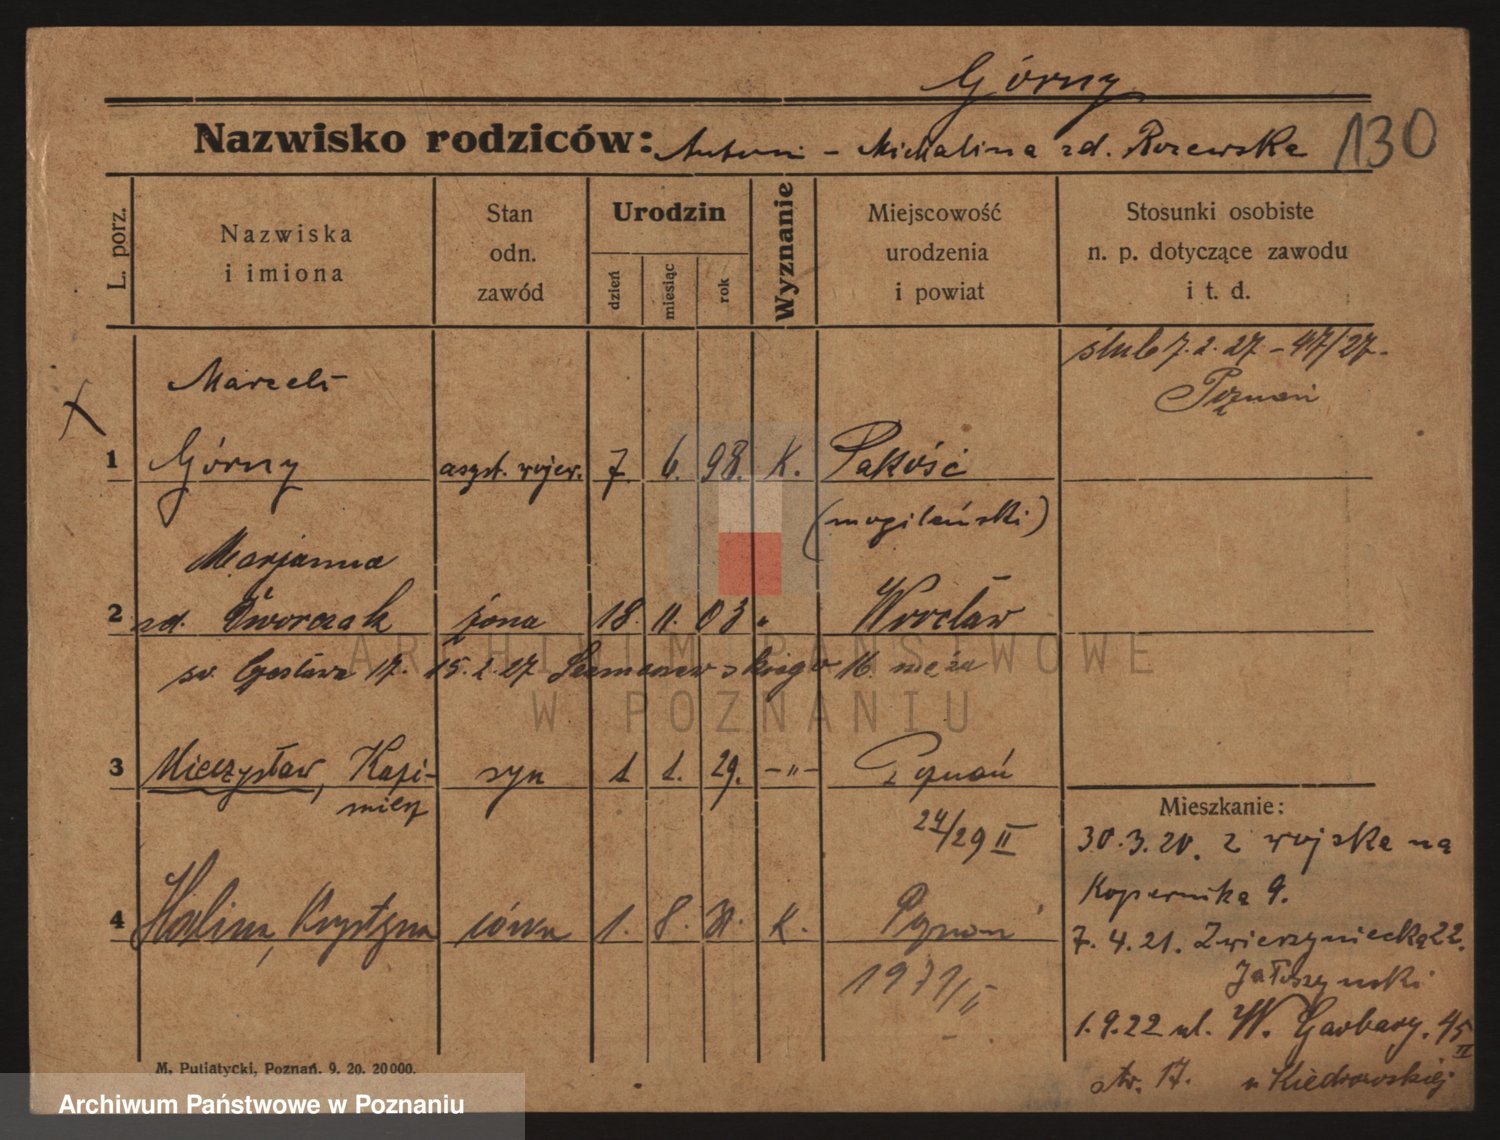 Górny
Nazwisko rodziców: Antoni - Michalina zd. Rozewska 130
L. porz.
Nazwiska
i imiona
Stan
odn.
zawód
Urodzin
dzień
miesiąc
rok
Wyznanie
Miejscowość
urodzenia
i powiat
Stosunki osobiste
n. p. dotyczące zawodu
i t. d.
ślub 7.2.27 - 47/27.
Poznań
Marceli
1 Górny asyst. wojew. 7. 6. 98. K. Pakość
(mogileński)
Marjanna
2 zd. Dworczak żona 18. 11. 03 " Wrocław
15.2.27
3 Mieczysław, Kazi- syn 1 1. 29. -"- Poznań
mierz
24/29 II
4 Halina, Krystyna córka 1. 8. 31. K. Poznań
1971/II
Mieszkanie:
30.3.20. z wojska na
Kopernika 9.
7.4.21. Zwierzyniecka 22.
Jałoszyński
1.9.22 ul. W. Garbary. 45 II
str. 17. u Kiedrowskiej
M. Putiatycki, Poznań. 9. 20. 20000.
ARCHIWUM PAŃSTWOWE
W POZNANIU
Archiwum Państwowe w Poznaniu